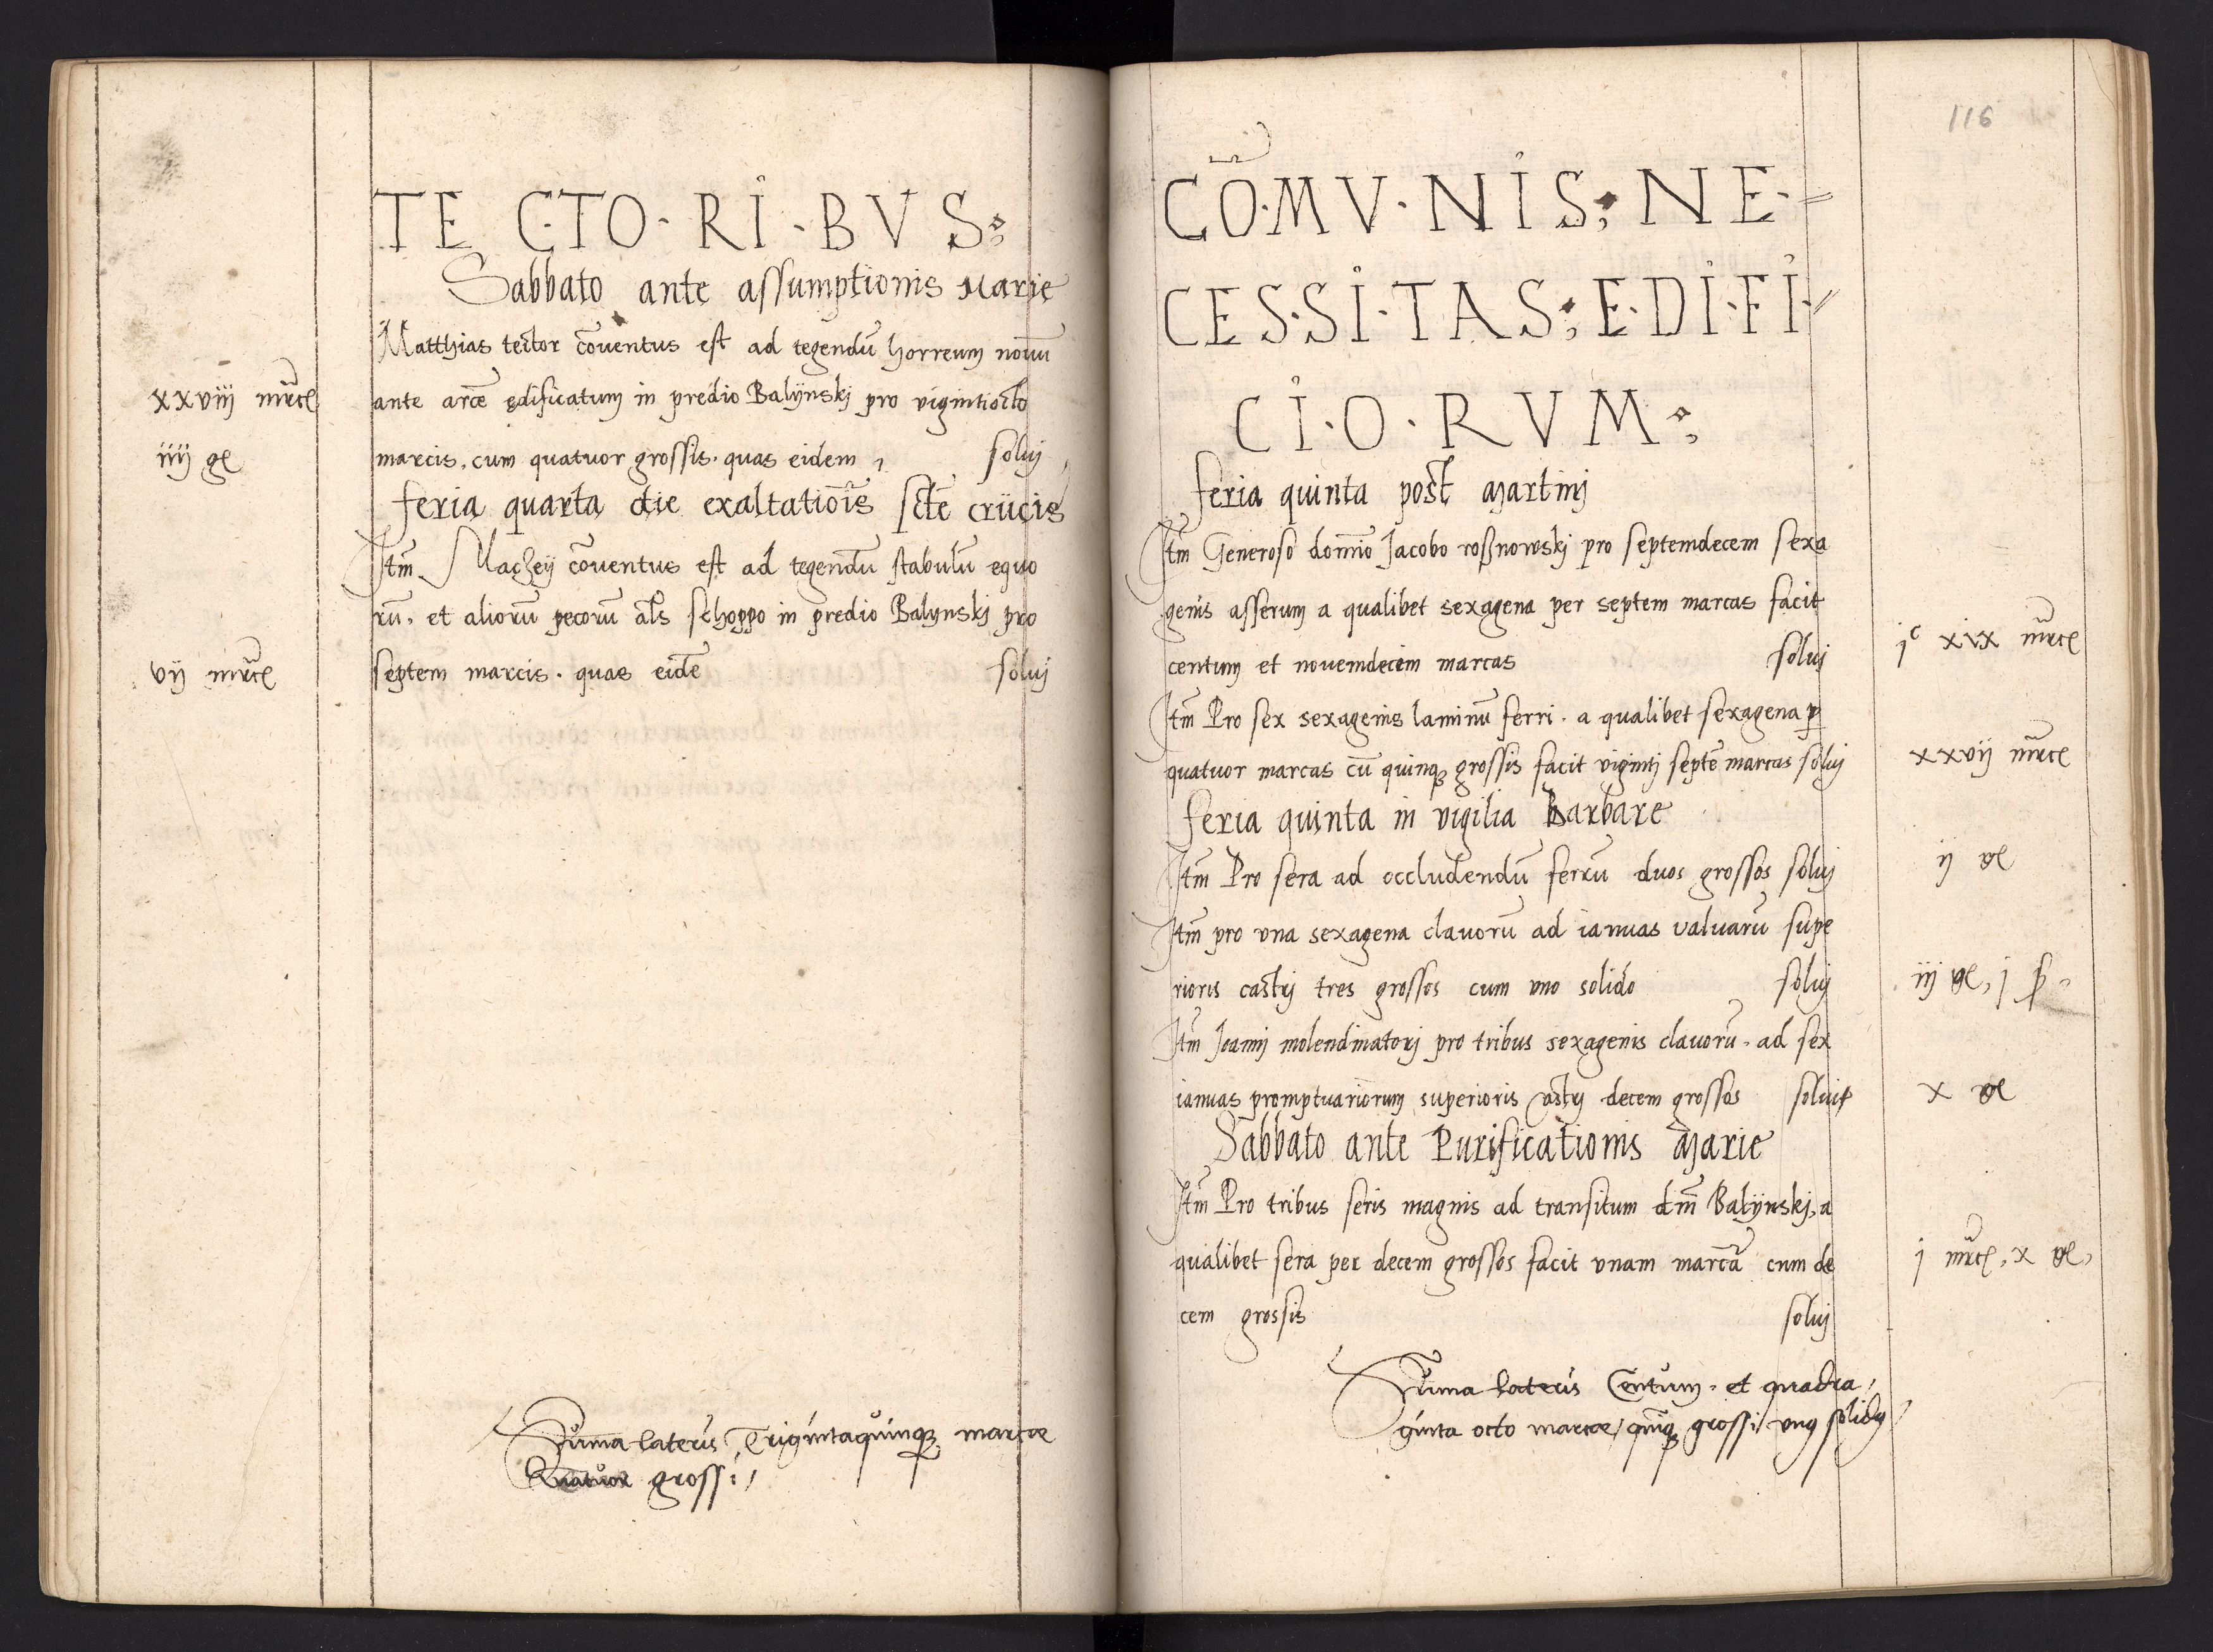 TE C·TO·RI·BVS:
Sabbato ante assumptionis Marie
Matthias tector cōuentus est ad tegendū horreum nouū
xxviij mrc ante arcē edificatum in predio Balÿnskj pro vigintiocto
iiij g marcis, cum quatuor grossis. quas eidem, soluj
feria quarta die exaltatiōis sctē crucis
Itm̄ Maczeÿ cōuentus est ad tegendū stabulū equo
rū. et aliorū pecorū als schoppo in predio Balynskj pro
vij mrc septem marcis. quas eidē soluj
Sūma lateris Trigintaquinqꝫ marcæ
Quatuor grossi /
116
CŌ·MV·NIS; NE·=
CES·SI·TAS; E·DI·FI·=
CI·O·RVM:
feria quinta post Martinj
Itm̄ Generoso domīo Jacobo roßnowskj pro septemdecem sexa
genis asserum a qualibet sexagena per septem marcas facit
centum et nouemdecim marcas soluj jᶜ xix mrc
Itm̄ Pro sex sexagenis laminū ferri. a qualibet sexagena ꝑ
quatuor marcas cū quinqꝫ grossis facit vigintj septē marcas soluj xxvij mrc
feria quinta in vigilia Barbare
Itm̄ Pro sera ad occludendū ferrū duos grossos soluj ij g
Itm̄ pro vna sexagena clauorū ad ianuas valuarū supe
rioris castrj tres grossos cum vno solido soluj iij g, j s
Itm̄ Joannj molendinatorj pro tribus sexagenis clauorū. ad sex
ianuas promptuariorum superioris castrj decem grossos soluj x g
Sabbato ante Purificationis Marie
Itm̄ Pro tribus seris magnis ad transitum dm̄ Balÿnskj, a
qualibet sera per decem grossos facit vnam marcā cum de j mrc, x g,
cem grossis soluj
Sūma lateris Centum. et quadra,
ginta octo marcæ / quīqꝫ grossi / vnus solidus /